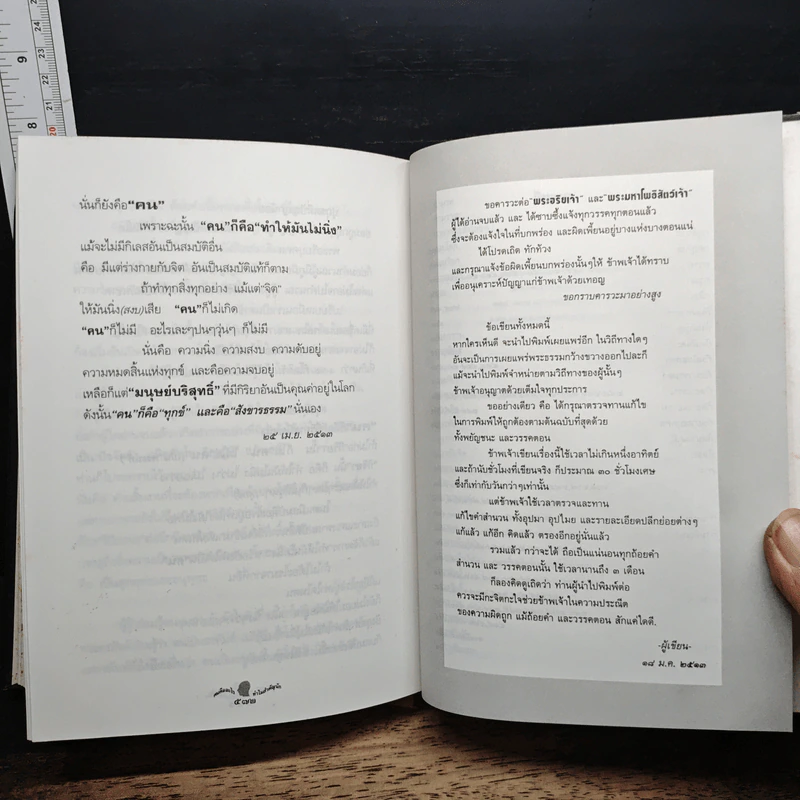 นั่นก็ยังคือ"คน"
เพราะฉะนั้น "คน"ก็คือ"ทำให้มันไม่นิ่ง"
แม้จะไม่มีกิเลสอันเป็นสมบัติอื่น
คือ มีแต่ร่างกายกับจิต อันเป็นสมบัติแท้ก็ตาม
ถ้าทำทุกสิ่งทุกอย่าง แม้แต่"จิต"
ให้มันนิ่ง(สงบ)เสีย "คน"ก็ไม่เกิด
"คน"ก็ไม่มี อะไรเละๆปนๆวุ่นๆ ก็ไม่มี
นั่นคือ ความนิ่ง ความสงบ ความดับอยู่
ความหมดสิ้นแห่งทุกข์ และคือความจบอยู่
เหลือก็แต่"มนุษย์บริสุทธิ์" ที่มีกิริยาอันเป็นคุณค่าอยู่ในโลก
ดังนั้น"คน"ก็คือ"ทุกข์" และคือ"สังขารธรรม"นั่นเอง
๒๕ เม.ย. ๒๕๑๓
๕๗๒
ขอคารวะต่อ"พระอริยเจ้า" และ"พระมหาโพธิสัตว์เจ้า"
ผู้ได้อ่านจบแล้ว และ ได้ซาบซึ้งแจ้งทุกวรรคทุกตอนแล้ว
ซึ่งจะต้องแจ้งใจในที่บกพร่อง และผิดเพี้ยนอยู่บางแห่งบางตอนแน่
ได้โปรดเถิด ทักท้วง
และกรุณาแจ้งข้อผิดเพี้ยนบกพร่องนั้นๆให้ ข้าพเจ้าได้ทราบ
เพื่ออนุเคราะห์ปัญญาแก่ข้าพเจ้าด้วยเทอญ
ขอกราบคารวะมาอย่างสูง
ข้อเขียนทั้งหมดนี้
หากใครเห็นดี จะนำไปพิมพ์เผยแพร่อีก ในวิถีทางใดๆ
อันจะเป็นการเผยแพร่พระธรรมกว้างขวางออกไปละก็
แม้จะนำไปพิมพ์จำหน่ายตามวิถีทางของผู้นั้นๆ
ข้าพเจ้าอนุญาตด้วยเต็มใจทุกประการ
ขออย่างเดียว คือ ได้กรุณาตรวจทานแก้ไข
ในการพิมพ์ให้ถูกต้องตามต้นฉบับที่สุดด้วย
ทั้งพยัญชนะ และวรรคตอน
ข้าพเจ้าเขียนเรื่องนี้ใช้เวลาไม่เกินหนึ่งอาทิตย์
และถ้านับชั่วโมงที่เขียนจริง ก็ประมาณ ๓๐ ชั่วโมงเศษ
ซึ่งก็เท่ากับวันกว่าๆเท่านั้น
แต่ข้าพเจ้าใช้เวลาตรวจและทาน
แก้ไขคำสำนวน ทั้งอุปมา อุปไมย และรายละเอียดปลีกย่อยต่างๆ
แก้แล้ว แก้อีก คิดแล้ว ตรองอีกอยู่นั่นแล้ว
รวมแล้ว กว่าจะได้ ถือเป็นแน่นอนทุกถ้อยคำ
สำนวน และ วรรคตอนนั้น ใช้เวลานานถึง ๓ เดือน
ก็ลองคิดดูเถิดว่า ท่านผู้นำไปพิมพ์ต่อ
ควรจะมีกะจิตกะใจช่วยข้าพเจ้าในความประณีต
ของความผิดถูก แม้ถ้อยคำ และวรรคตอน สักแค่ใดดี.
-ผู้เขียน-
๑๘ ม.ค. ๒๕๑๓
9
8